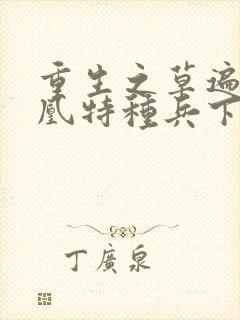 重生之草遍
凰特種兵下
丁廣泉